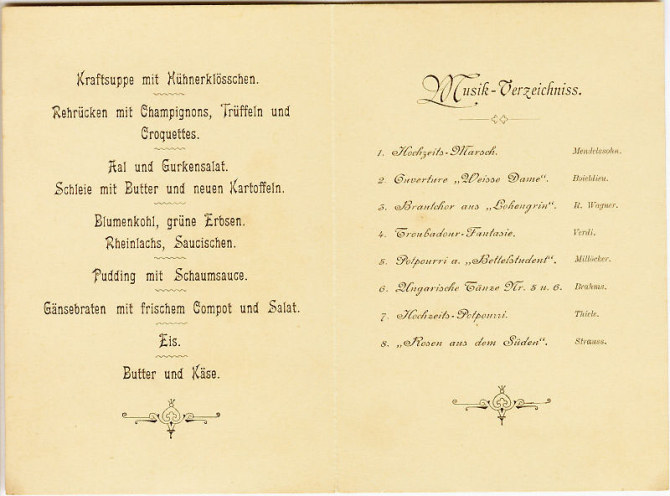 Kraftsuppe mit Hühnerklösschen.
Rehrücken mit Champignons, Trüffeln und
Croquettes.
Aal und Gurkensalat.
Schleie mit Butter und neuen Kartoffeln.
Blumenkohl, grüne Erbsen.
Rheinlachs, Saucischen.
Pudding mit Schaumsauce.
Gänsebraten mit frischem Compot und Salat.
Eis.
Butter und Käse.
Musik-Verzeichniss.
1. Hochzeits-Marsch. Mendelssohn.
2. Ouverture „Weisse Dame". Boieldieu.
3. Brautchor aus „Lohengrin". R. Wagner.
4. Troubadour-Fantasie. Verdi.
5. Potpourri a. „Bettelstudent". Millöcker.
6. Ungarische Tänze Nr. 5 u. 6. Brahms.
7. Hochzeits-Potpourri. Thiele.
8. „Rosen aus dem Süden". Strauss.